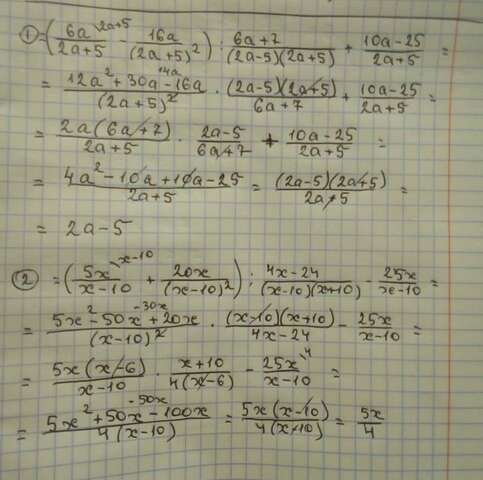 ① = (6a^\2a+5/(2a+5) - 16a/(2a+5)²) : (6a+7)/((2a-5)(2a+5)) + (10a-25)/(2a+5) =
= (12a²+30a-16a ^14a)/(2a+5)² · ((2a-5)(2a+5))/(6a+7) + (10a-25)/(2a+5) =
= 2a(6a+7)/(2a+5) · (2a-5)/(6a+7) + (10a-25)/(2a+5) =
= (4a²-10a+10a-25)/(2a+5) = ((2a-5)(2a+5))/(2a+5) =
= 2a-5
② = (5x^\x-10/(x-10) + 20x/(x-10)²) : (4x-24)/((x-10)(x+10)) - 25x/(x-10) =
= (5x²-50x+20x ^-30x)/(x-10)² · ((x-10)(x+10))/(4x-24) - 25x/(x-10) =
= 5x(x-6)/(x-10) · (x+10)/(4(x-6)) - 25x^\4/(x-10) =
= (5x²+50x-100x ^-50x)/(4(x-10)) = 5x(x-10)/(4(x-10)) = 5x/4